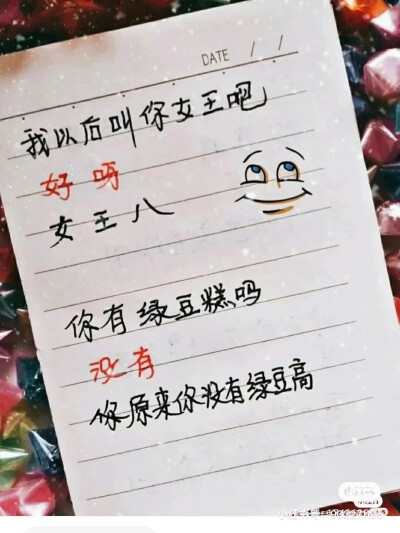 DATE / /
我以后叫你女王吧
好呀
女王八
你有绿豆糕吗
没有
你原来你没有绿豆高